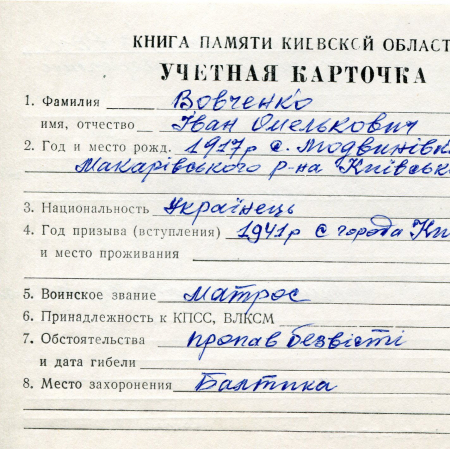 КНИГА ПАМЯТИ КИЕВСКОЙ ОБЛАСТ
УЧЕТНАЯ КАРТОЧКА
1. Фамилия Вовченко
имя, отчество Іван Омелькович
2. Год и место рожд. 1917р с. Модвинівк
Макарівського р-на Київськ
3. Национальность Українець
4. Год призыва (вступления) 1941р с города Ки
и место проживания
5. Воинское звание матрос
6. Принадлежность к КПСС, ВЛКСМ
7. Обстоятельства пропав безвісти
и дата гибели
8. Место захоронения Балтика